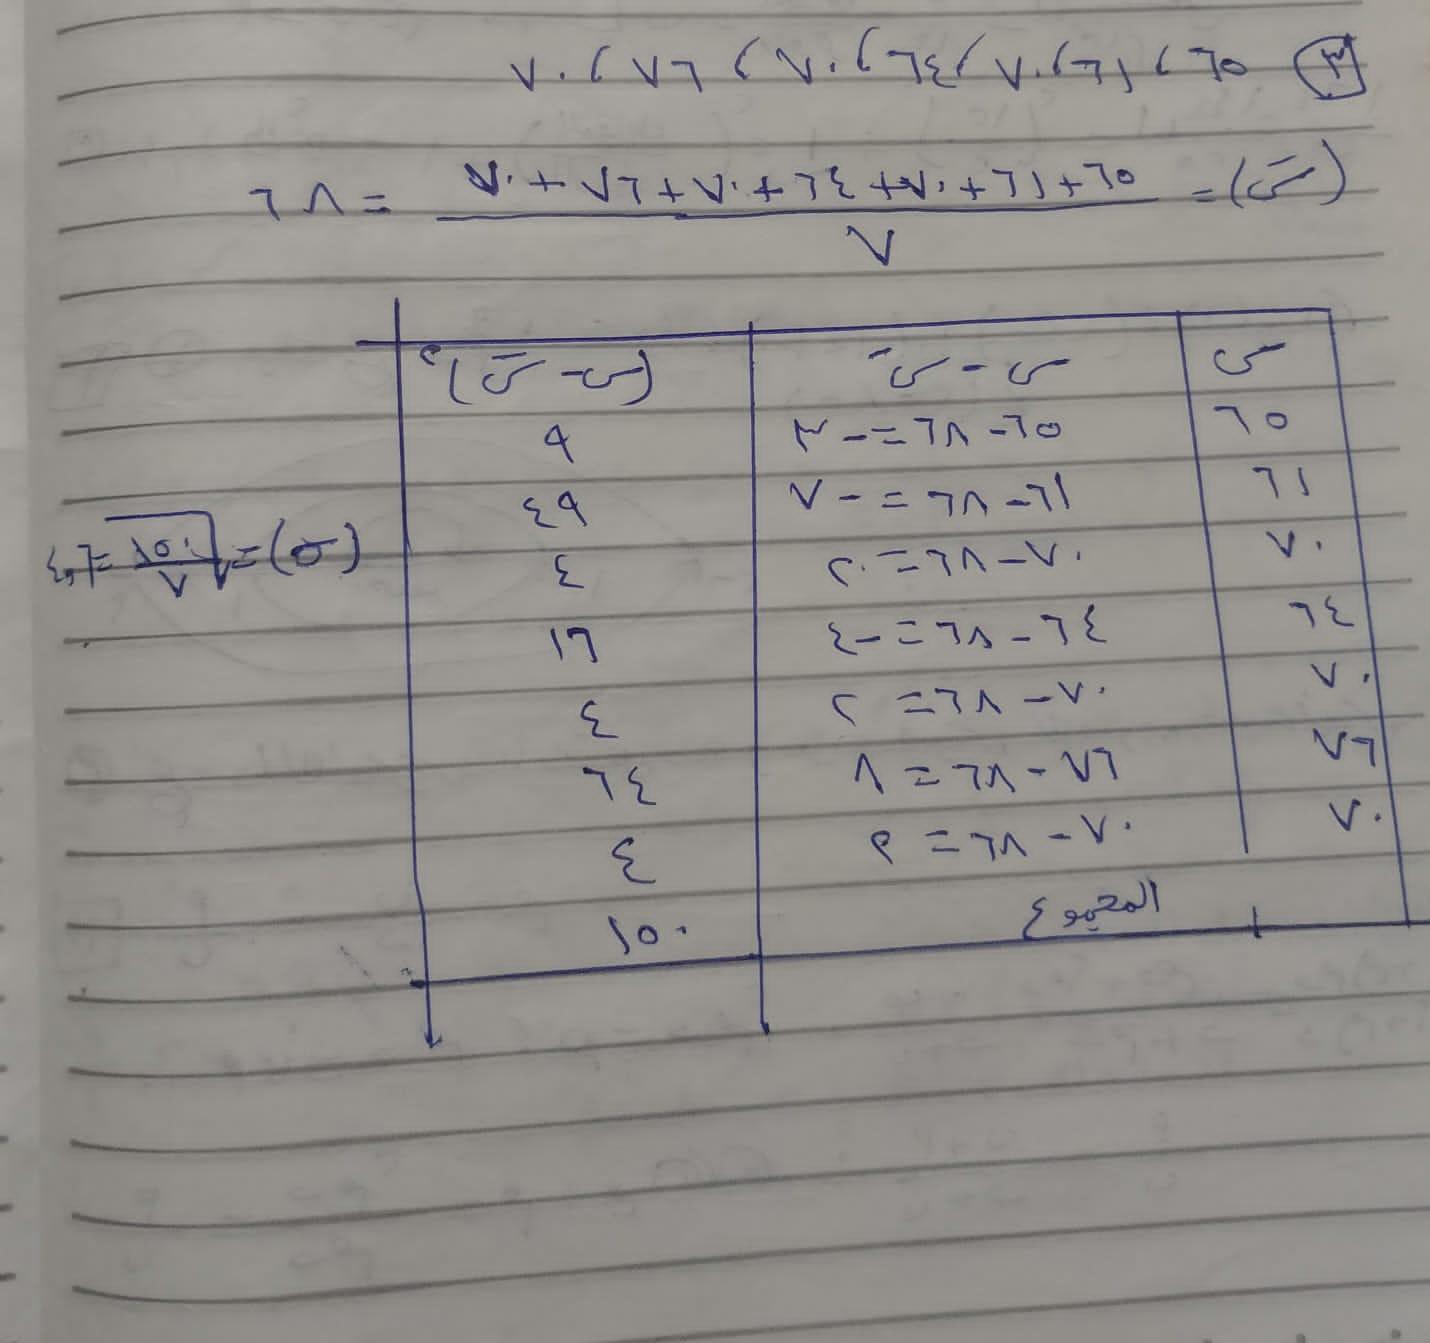 ٣ ٦٥ ، ٦١ ، ٧٠ ، ٦٤ ، ٧٠ ، ٧٦ ، ٧٠
(س̄) = ٦٥ + ٦١ + ٧٠ + ٦٤ + ٧٠ + ٧٦ + ٧٠ / ٧ = ٦٨
س س - س̄ (س - س̄)٢
٦٥ ٦٥ - ٦٨ = - ٣ ٩
٦١ ٦١ - ٦٨ = - ٧ ٤٩
٧٠ ٧٠ - ٦٨ = ٢ ٤
(σ) = √١٥٠/٧ =
٦٤ ٦٤ - ٦٨ = - ٤ ١٦
٧٠ ٧٠ - ٦٨ = ٢ ٤
٧٦ ٧٦ - ٦٨ = ٨ ٦٤
٧٠ ٧٠ - ٦٨ = ٢ ٤
المجموع ١٥٠